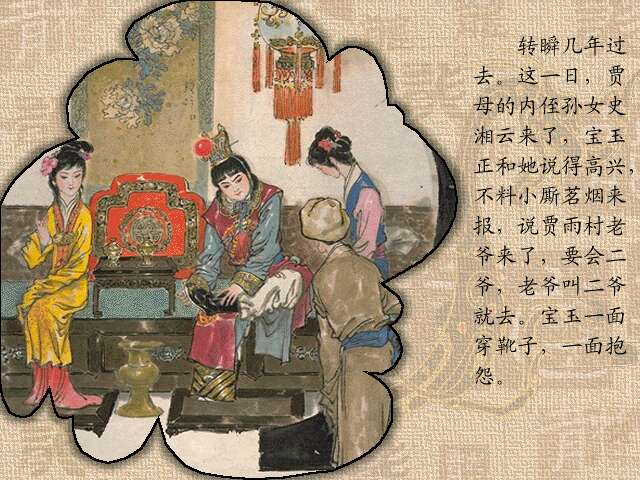 转瞬几年过
去。这一日，贾
母的内侄孙女史
湘云来了，宝玉
正和她说得高兴，
不料小厮茗烟来
报，说贾雨村老
爷来了，要会二
爷，老爷叫二爷
就去。宝玉一面
穿靴子，一面抱
怨。